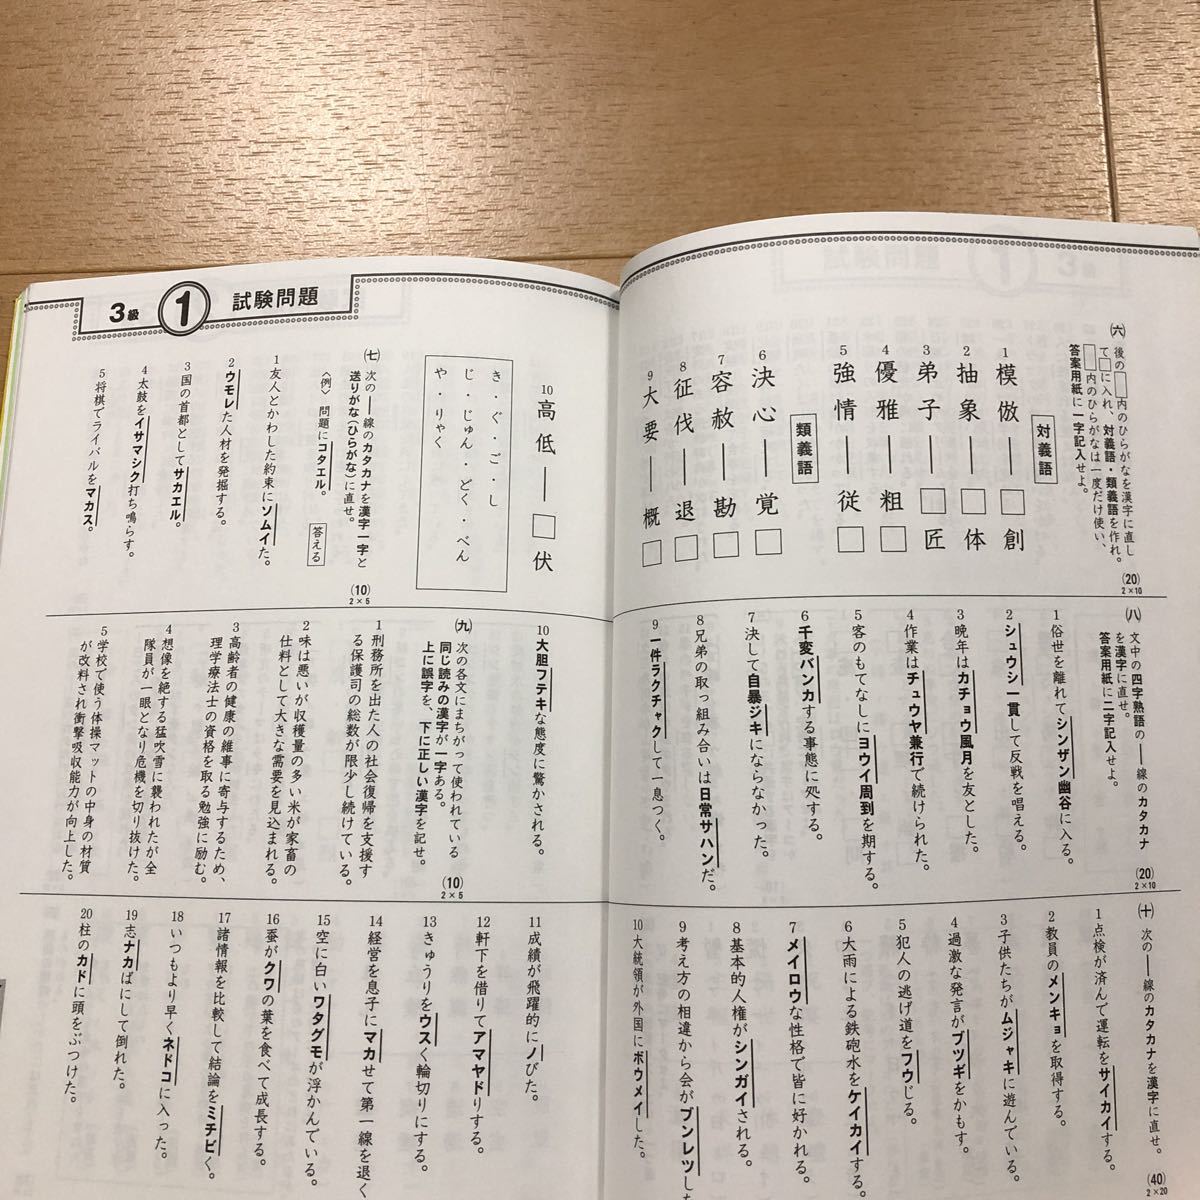 (六) 後の□内のひらがなを漢字に直し
て□に入れ、対義語・類義語を作れ。
□内のひらがなは一度だけ使い、
答案用紙に一字記入せよ。
(20)
2×10
対義語
1 模倣―□創
2 抽象―□体
3 弟子―□匠
4 優雅―粗□
5 強情―従□
類義語
6 決心―覚□
7 容赦―勘□
8 征伐―退□
9 大要―概□
10 高低―□伏
き・ぐ・ご・し
じ・じゅん・どく・べん
や・りゃく
3級 1 試験問題
(七) 次の―線のカタカナを漢字一字と
送りがな(ひらがな)に直せ。
〈例〉 問題にコタエル。 答える
(10)
2×5
1 友人とかわした約束にソムイた。
2 ウモレた人材を発掘する。
3 国の首都としてサカエル。
4 太鼓をイサマシク打ち鳴らす。
5 将棋でライバルをマカス。
(八) 文中の四字熟語の―線のカタカナ
を漢字に直せ。
答案用紙に二字記入せよ。
(20)
2×10
1 俗世を離れてシンザン幽谷に入る。
2 シュウシ一貫して反戦を唱える。
3 晩年はカチョウ風月を友とした。
4 作業はチュウヤ兼行で続けられた。
5 客のもてなしにヨウイ周到を期する。
6 千変バンカする事態に処する。
7 決して自暴ジキにならなかった。
8 兄弟の取っ組み合いは日常サハンだ。
9 一件ラクチャクして一息つく。
10 大胆フテキな態度に驚かされる。
(九) 次の各文にまちがって使われている
同じ読みの漢字が一字ある。
上に誤字を、下に正しい漢字を記せ。
(10)
2×5
1 刑務所を出た人の社会復帰を支援す
る保護司の総数が限少し続けている。
2 味は悪いが収穫量の多い米が家畜の
仕料として大きな需要を見込まれる。
3 高齢者の健康の維事に寄与するため、
理学療法士の資格を取る勉強に励む。
4 想像を絶する猛吹雪に襲われたが全
隊員が一眼となり危機を切り抜けた。
5 学校で使う体操マットの中身の材質
が改料され衝撃吸収能力が向上した。
(十) 次の―線のカタカナを漢字に直せ。
(40)
2×20
1 点検が済んで運転をサイカイする。
2 教員のメンキョを取得する。
3 子供たちがムジャキに遊んでいる。
4 過激な発言がブツギをかもす。
5 犯人の逃げ道をフウじる。
6 大雨による鉄砲水をケイカイする。
7 メイロウな性格で皆に好かれる。
8 基本的人権がシンガイされる。
9 考え方の相違から会がブンレツした
10 大統領が外国にボウメイした。
11 成績が飛躍的にノびた。
12 軒下を借りてアマヤドりする。
13 きゅうりをウスく輪切りにする。
14 経営を息子にマカせて第一線を退く
15 空に白いワタグモが浮かんでいる。
16 蚕がクワの葉を食べて成長する。
17 諸情報を比較して結論をミチビく。
18 いつもより早くネドコに入った。
19 志ナカばにして倒れた。
20 柱のカドに頭をぶつけた。